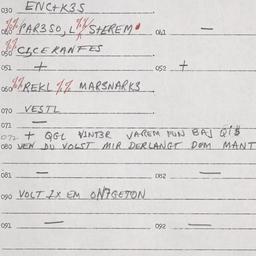 030 ENC+K3S
040 PAR3SO, L S+EREM 041 —
050 CLCERANFES
051 + 052 +
060 REKL MARSNARKS
070 VESTL
071 —
072 + QGL VINT3R VAREM FUN BAJ QIS
080 VEN DU VOLST MIR DERLANGT DEM MANT
081 — 082 —
090 VOLT IX EM ON7GETON
091 — 092 —